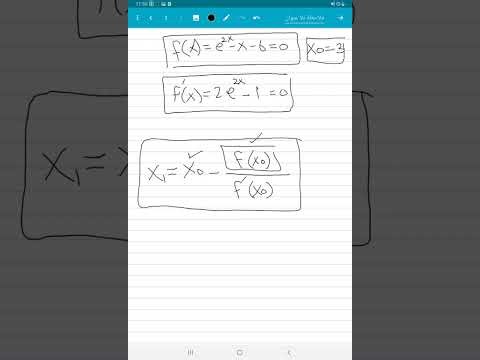 f(x) = e^2x - x - 6 = 0   X0 = 3
f'(x) = 2e^2x - 1 = 0
X1 = X0 - f(x0) / f'(x0)